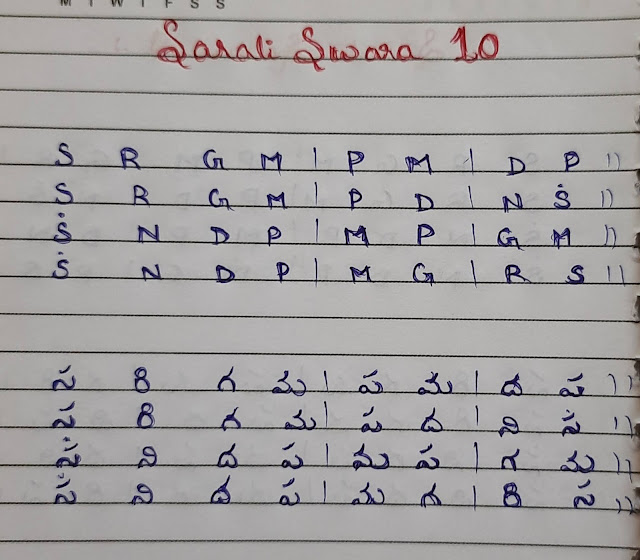 M T W T F S S
Sarali Swara 10
S R G M | P M | D P ||
S R G M | P D | N Ṡ ||
Ṡ N D P | M P | G M ||
Ṡ N D P | M G | R S ||
స రి గ మ | ప మ | ద ప ||
స రి గ మ | ప ద | ని స ||
స ని ద ప | మ ప | గ మ ||
స ని ద ప | మ గ | రి స ||